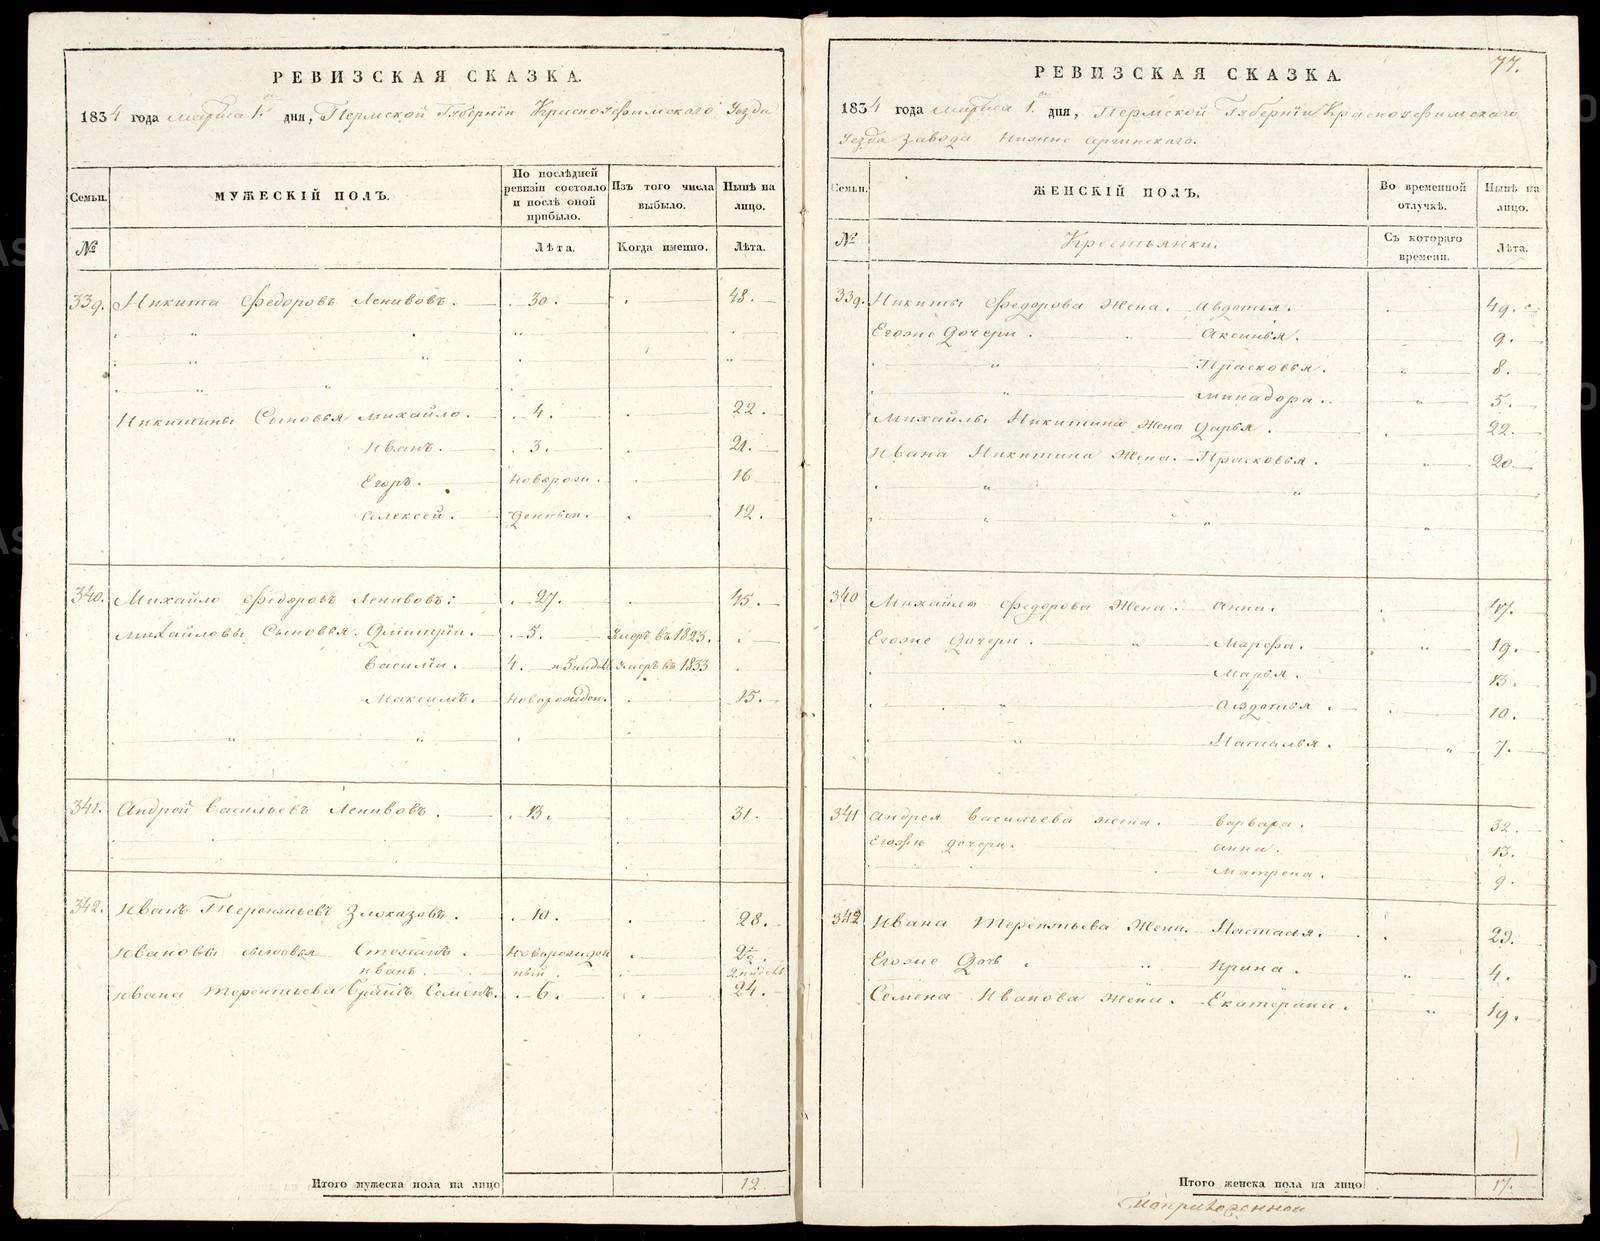 РЕВИЗСКАЯ СКАЗКА.
1834 года марта 1го дня, Пермской Губернiи Красноуфимскаго Уезда
Семьи.
МУЖЕСКIЙ ПОЛЪ.
По послѣдней ревизiи состояло и послѣ оной прибыло.
Изъ того числа выбыло.
Нынѣ на лицо.
№
Лѣта.
Когда именно.
Лѣта.
339. Никита Федоровъ Ленивовъ. 30. 48.
Никитины Сыновья Михайло. 4. 22.
Иванъ. 3. 21.
Егоръ. новорож. 16
Алексей. денныи. 12.
340. Михайло Федоровъ Ленивовъ: 27. 45.
Михайловы Сыновья. Дмiтрiи. 5. Умеръ въ 1823.
Василiи. 4. умеръ въ 1833
Максимъ. новорожден. 15.
341. Андрей Васильевъ Ленивовъ. 13. 31.
342. Иванъ Терентьевъ Злоказовъ. 10. 28.
Ивановы сыновья Степанъ. Новорожден
иванъ. ный. 2 недел
Ивана Терентьева братъ Семенъ. 6. 24.
Итого мужеска пола на лицо 12.
77.
РЕВИЗСКАЯ СКАЗКА.
1834 года марта 1го дня, Пермской Губернiи Красноуфимскаго
Уезда Завода Нижне сергинскаго.
Семьи.
ЖЕНСКIЙ ПОЛЪ.
Во временной отлучкѣ.
Нынѣ на лицо.
№
Крестьянки.
Съ котораго времени.
Лѣта.
339. Никиты Федорова Жена. Авдотья. 49.
Егоже Дочери. Аксинья. 9.
Прасковья. 8.
Минадора. 5.
Михайлы Никитина жена Дарья. 22.
Ивана Никитина Жена. Прасковья. 20.
340 Михайлы Федорова Жена. Анна. 47.
Егоже Дочери. Марфа. 19.
Марья. 13.
Авдотья. 10.
Наталья. 7.
341 Андрея Васильева жена. Варвара. 32.
Егоже дочери. Анна. 13.
Матрена. 9.
342 Ивана Терентьева Жена. Настасья. 29.
Егоже Дочь. Ирина. 4.
Семена Иванова Жена. Екатерина. 19.
Итого женска пола на лицо 17.